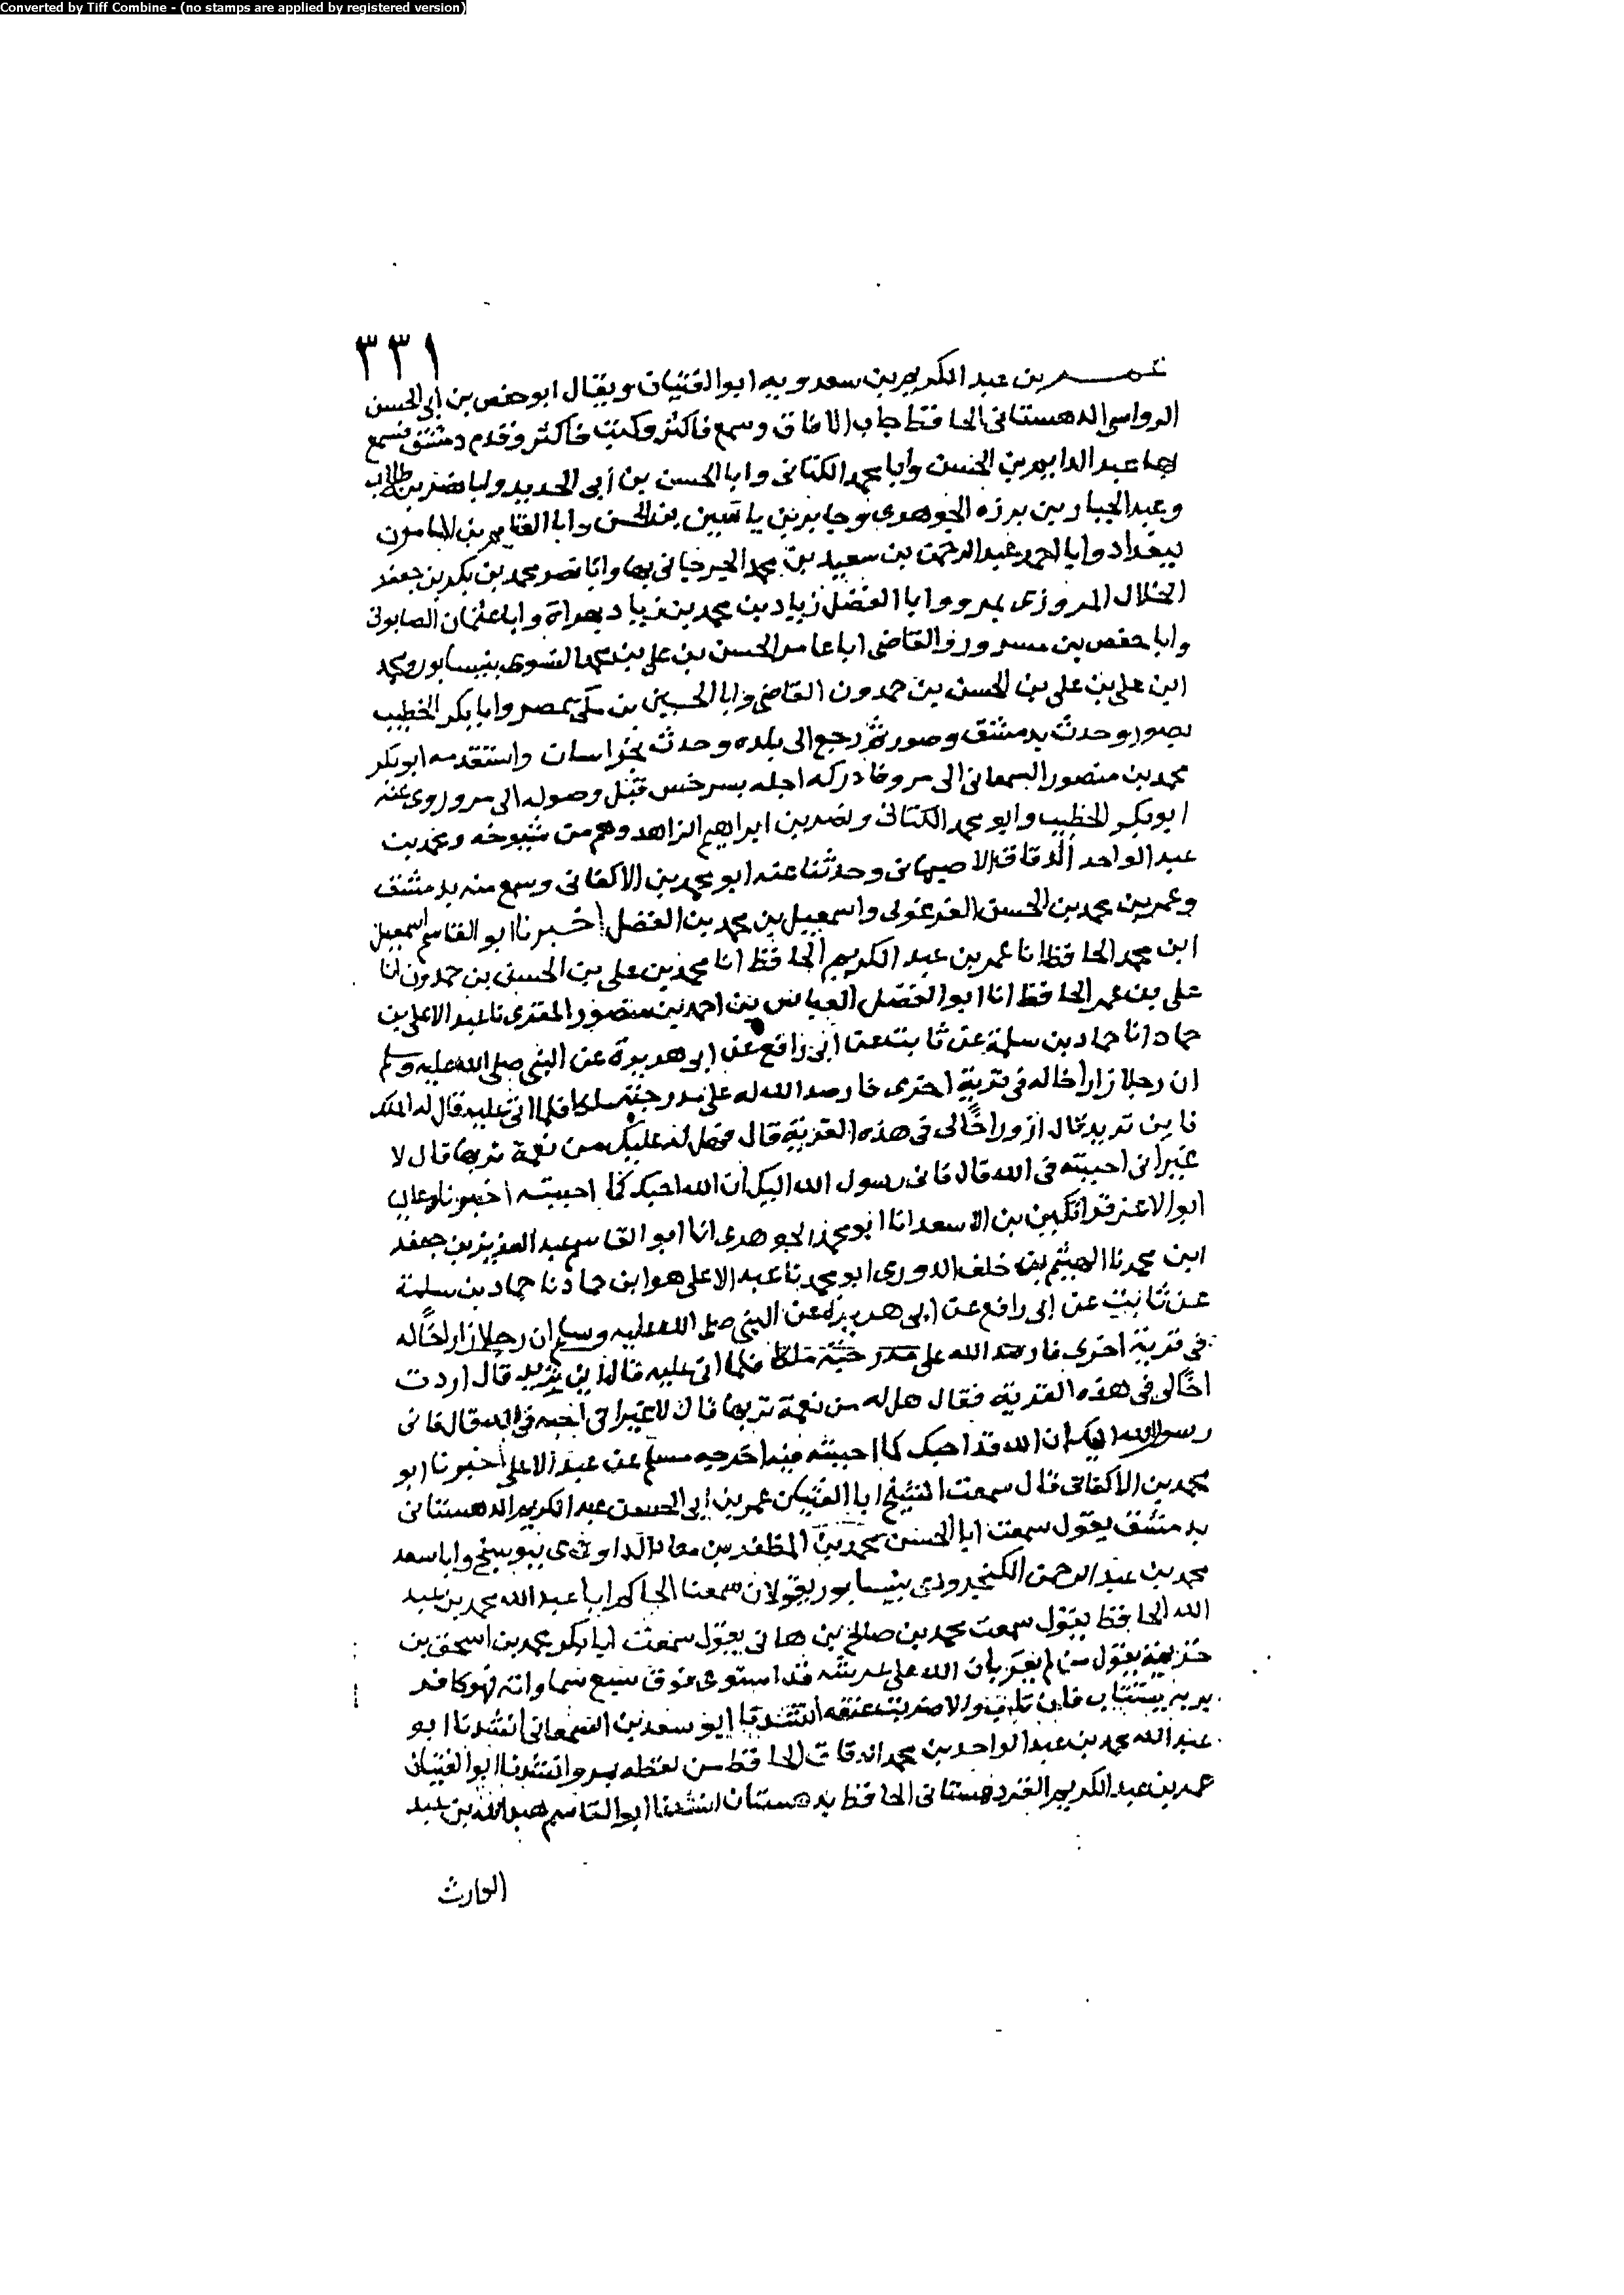 Converted by Tiff Combine - (no stamps are applied by registered version)
٣٣١
عمر بن عبد الكريم بن سعدويه ابو الفتيان ويقال ابو حفص بن ابي الحسن
الرواسي الدهستاني الحافظ جاب الافاق وسمع فاكثر وكتب فاكثر وقدم دمشق فسمع
بها عبد الدايم بن الحسن وابا محمد الكتاني وابا الحسن بن أبي الحديد وابا نصر بن طلاب
وعبد الجبار بن برزه الجوهري وجابر بن ياسين بن الحسن وابا الغنايم بن المامون
ببغداد وابا احمد عبد الرحمن بن سعيد بن محمد بها وابا نصر محمد بن بكر بن جعفر
الخلال المروزى بمرو وابا الفضل زياد بن محمد بن زياد بهراة وابا عثمان الصابوني
وابا حفص بن مسرور والقاضى ابا عامر الحسن بن علي بن محمد النسوى بنيسابور ومحمد
ابن علي بن علي بن الحسن بن حمدون القاضي وابا الحسين بن مكي بمصر وابا بكر الخطيب
بصور وحدث بدمشق وصور ثم رجع الى بلده وحدث بخراسان واستقدمه ابو بكر
محمد بن منصور السمعاني الى مرو فادركه اجله بسرخس قبل وصوله الى مرو روى عنه
ابو بكر الخطيب وابو محمد الكتاني ونصر بن ابراهيم الزاهد وهم من شيوخه ومحمد بن
عبد الواحد الدقاق الاصبهانى وحدثنا عنه ابو محمد بن الاكفانى وسمع منه بدمشق
وعمر بن محمد بن الحسن الفرغولى واسمعيل بن محمد بن الفضل اخبرنا ابو القاسم اسمعيل
ابن محمد الحافظ انا عمر بن عبد الكريم الحافظ انا محمد بن علي بن الحسن بن حمدون انا
علي بن عمر الحافظ انا ابو الفضل العباس بن احمد بن منصور المقرى نا عبد الاعلى بن
حماد انا حماد بن سلمة عن ثابت عن ابي رافع عن ابي هريرة عن النبي صلى الله عليه وسلم
ان رجلا زار اخا له في قرية اخرى فارصد الله له على مدرجته ملكا فلما اتى عليه قال له الملك
فاين تريد قال ازور اخًا لى فى هذه القرية قال فهل له عليك من نعمة تربها قال لا
غير انى احببته في الله قال فانى رسول الله اليك ان الله احبك كما احببته اخبرناه عاليا
ابو الاعز قراتكين بن الاسعد انا ابو محمد الجوهرى انا ابو القاسم عبد العزيز بن جعفر
ابن محمد نا الهيثم بن خلف الدورى ابو محمد نا عبد الاعلى هو ابن حماد نا حماد بن سلمة
عن ثابت عن ابى رافع عن ابى هريرة عن النبي صلى الله عليه وسلم ان رجلا زار اخًا له
في قرية اخرى فارصد الله على مدرجته ملكا فلما اتى عليه قال اين تريد قال اردت
اخًا لى فى هذه القرية فقال هل له من نعمة تربها قال لا غير انى احبه في الله قال فانى
رسول الله اليك ان الله قد احبك كما احببته فيه اخرجه مسلم عن عبد الاعلى اخبرنا ابو
محمد بن الاكفانى قال سمعت الشيخ ابا الفتيان عمر بن ابي الحسن عبد الكريم الدهستانى
بدمشق يقول سمعت ابا الحسن محمد بن المظفر بن معاذ الداودى ببوسنج وابا سعد
محمد بن عبد الرحمن الكنجرودى بنيسابور يقولان سمعنا الحاكم ابا عبد الله محمد بن عبد
الله الحافظ يقول سمعت محمد بن صالح بن هانى يقول سمعت ابا بكر محمد بن اسحق بن
خزيمة يقول من لم يقر بان الله على عرشه قد استوى فوق سبع سماواته فهو كافر
بربه يستتاب فان تاب والا ضربت عنقه انشدنا ابو سعد بن السمعانى انشدنا ابو
عبد الله محمد بن عبد الواحد بن محمد الدقاق الحافظ من لفظه بمرو انشدنا ابو الفتيان
عمر بن عبد الكريم الحافظ بدهستان انشدنا ابو القاسم هبة الله بن عبد
الوارث